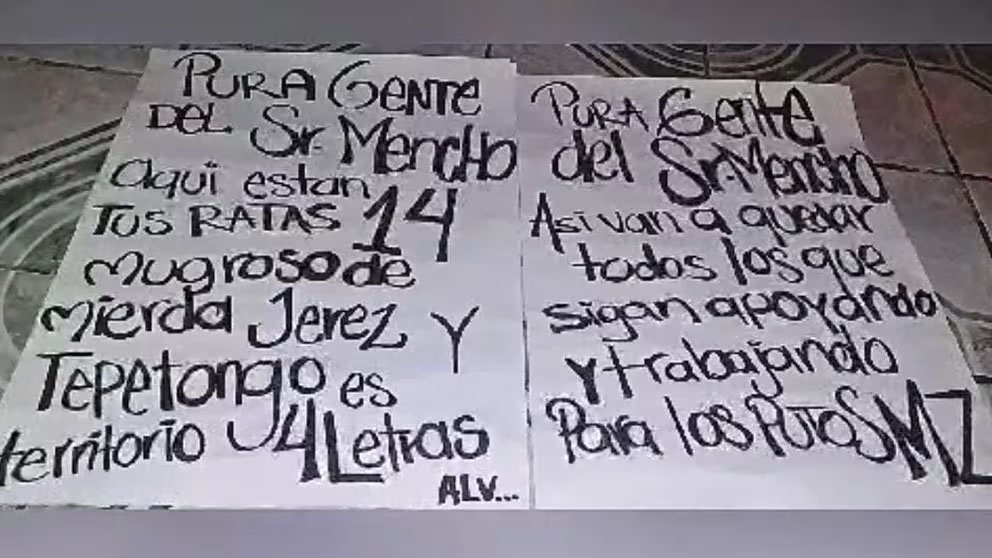 PURA GENTE
DEL Sr. MENCHO
Aqui estan
TUS RATAS 14
mugroso de
mierda Jerez Y
TEPetongo es
territorio 4Letras
ALV...
PURA Gente
del Sr. Mencho
Asi van a quedar
todos los que
sigan apoyando
y trabajando
Para los PUTOS MZ